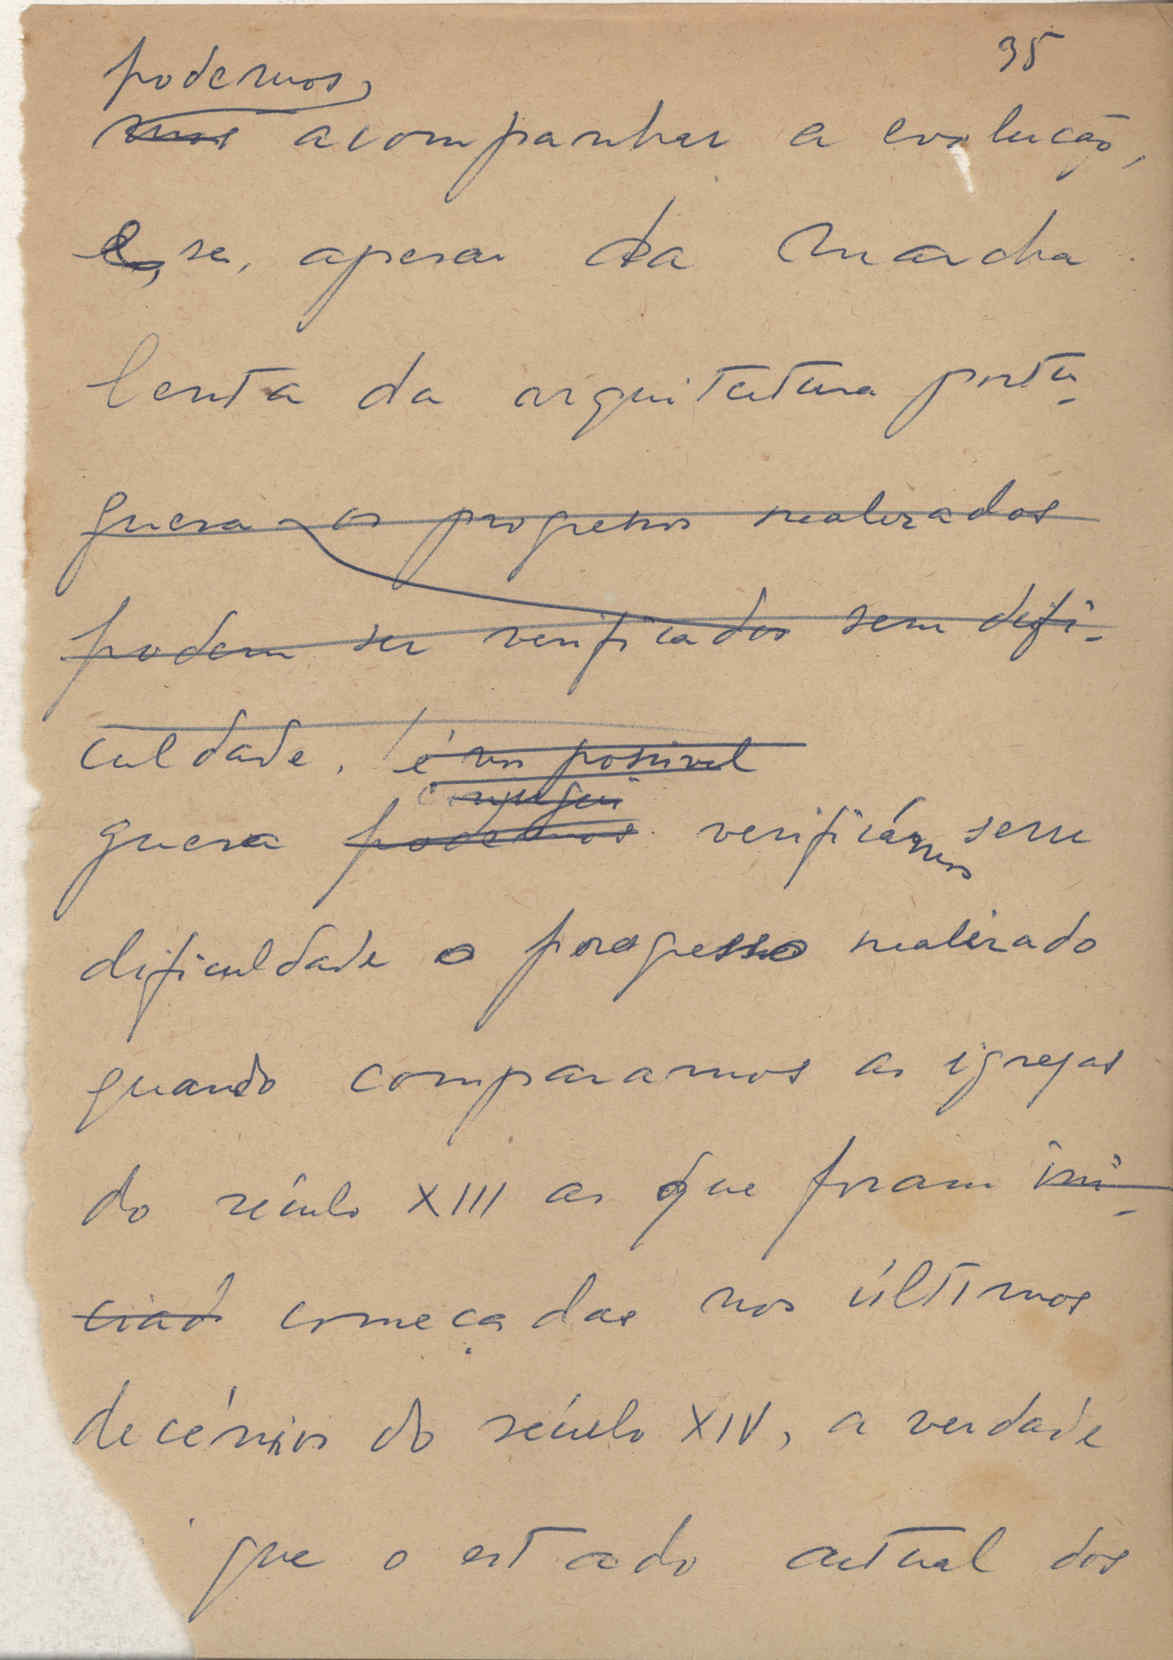 35
podemos,
mos acompanhar a evolução,
e, se, apesar da marcha
lenta da arquitectura portu-
guesa os progressos realizados
podem ser verificados sem defi-
culdade. é nos possivel
guesa podemos verificármos sem
dificuldade o progresso realizado
quando comparamos as igrejas
do século XIII as que foram ini-
ciad começadas nos últimos
decénios do século XIV, a verdade
que o estado actual dos